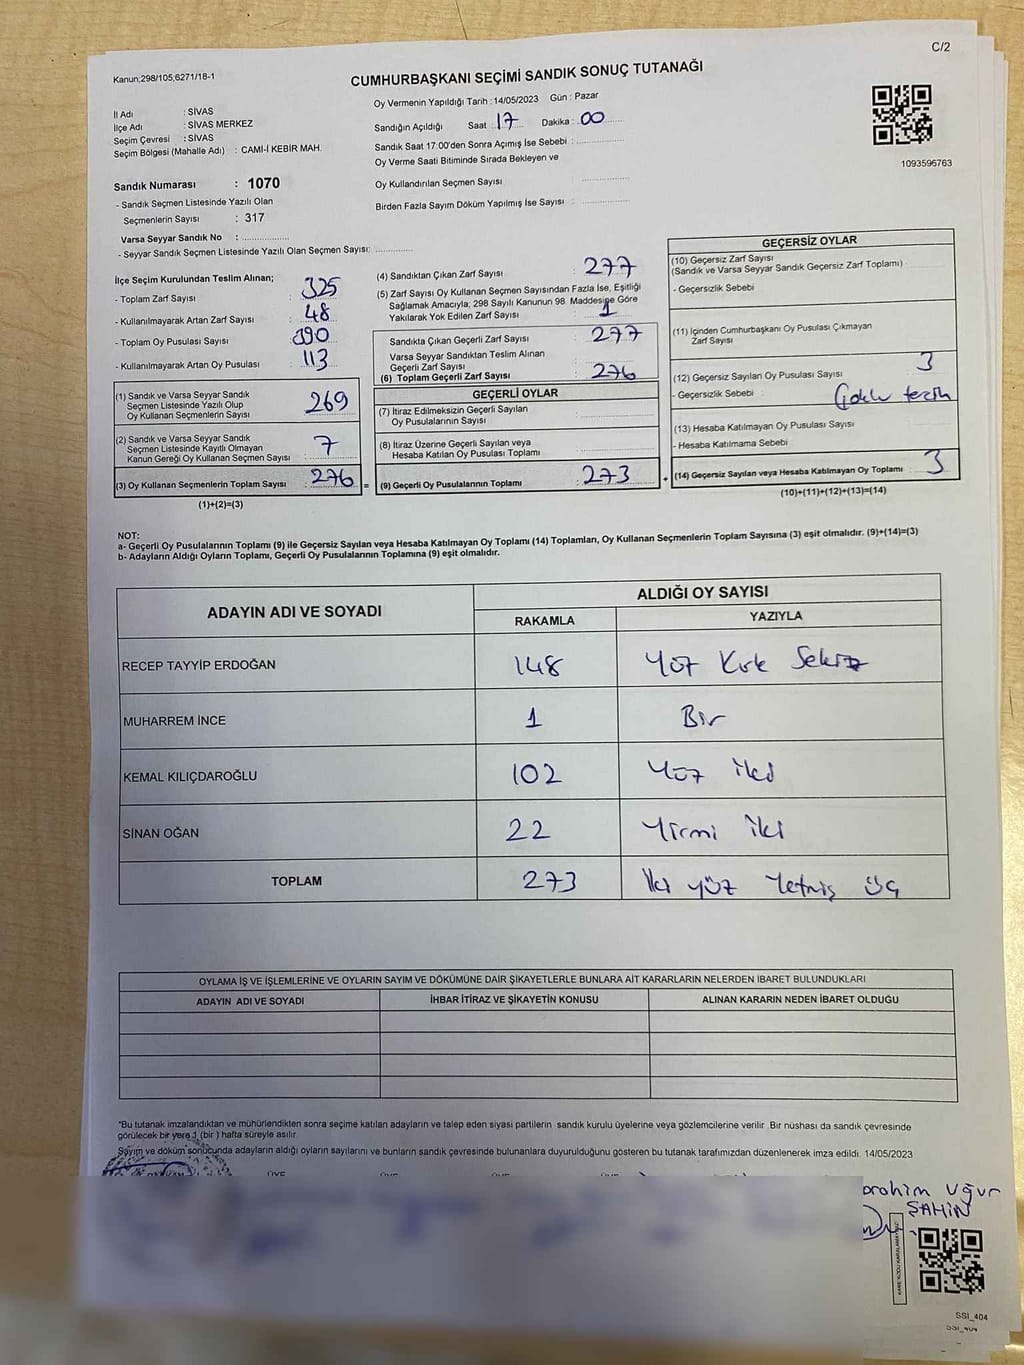 C/2
Kanun;298/105,6271/18-1
CUMHURBAŞKANI SEÇİMİ SANDIK SONUÇ TUTANAĞI
İl Adı : SİVAS
İlçe Adı : SİVAS MERKEZ
Seçim Çevresi : SİVAS
Seçim Bölgesi (Mahalle Adı) : CAMİ-İ KEBİR MAH.
Sandık Numarası : 1070
- Sandık Seçmen Listesinde Yazılı Olan
Seçmenlerin Sayısı : 317
Varsa Seyyar Sandık No :
- Seyyar Sandık Seçmen Listesinde Yazılı Olan Seçmen Sayısı:
Oy Vermenin Yapıldığı Tarih :14/05/2023 Gün : Pazar
Sandığın Açıldığı Saat 17 Dakika : 00
Sandık Saat 17:00'den Sonra Açımış İse Sebebi :
Oy Verme Saati Bitiminde Sırada Bekleyen ve
Oy Kullandırılan Seçmen Sayısı :
Birden Fazla Sayım Döküm Yapılmış İse Sayısı :
1093596763
İlçe Seçim Kurulundan Teslim Alınan;
- Toplam Zarf Sayısı : 325
- Kullanılmayarak Artan Zarf Sayısı : 48
- Toplam Oy Pusulası Sayısı : 390
- Kullanılmayarak Artan Oy Pusulası : 113
(1) Sandık ve Varsa Seyyar Sandık
Seçmen Listesinde Yazılı Olup
Oy Kullanan Seçmenlerin Sayısı : 269
(2) Sandık ve Varsa Seyyar Sandık
Seçmen Listesinde Kayıtlı Olmayan
Kanun Gereği Oy Kullanan Seçmen Sayısı : 7
(3) Oy Kullanan Seçmenlerin Toplam Sayısı : 276 =
(1)+(2)=(3)
(4) Sandıktan Çıkan Zarf Sayısı : 277
(5) Zarf Sayısı Oy Kullanan Seçmen Sayısından Fazla İse, Eşitliği
Sağlamak Amacıyla; 298 Sayılı Kanunun 98. Maddesine Göre
Yakılarak Yok Edilen Zarf Sayısı : 1
Sandıkta Çıkan Geçerli Zarf Sayısı : 277
Varsa Seyyar Sandıktan Teslim Alınan
Geçerli Zarf Sayısı :
(6) Toplam Geçerli Zarf Sayısı : 276
GEÇERLİ OYLAR
(7) İtiraz Edilmeksizin Geçerli Sayılan
Oy Pusulasının Sayısı :
(8) İtiraz Üzerine Geçerli Sayılan veya
Hesaba Katılan Oy Pusulası Toplamı :
(9) Geçerli Oy Pusulalarının Toplamı : 273 +
GEÇERSİZ OYLAR
(10) Geçersiz Zarf Sayısı
(Sandık ve Varsa Seyyar Sandık Geçersiz Zarf Toplamı) :
- Geçersizlik Sebebi :
(11) İçinden Cumhurbaşkanı Oy Pusulası Çıkmayan
Zarf Sayısı :
(12) Geçersiz Sayılan Oy Pusulası Sayısı : 3
- Geçersizlik Sebebi : Çoklu tercih
(13) Hesaba Katılmayan Oy Pusulası Sayısı :
- Hesaba Katılmama Sebebi :
(14) Geçersiz Sayılan veya Hesaba Katılmayan Oy Toplamı : 3
(10)+(11)+(12)+(13)=(14)
NOT:
a- Geçerli Oy Pusulalarının Toplamı (9) ile Geçersiz Sayılan veya Hesaba Katılmayan Oy Toplamı (14) Toplamları, Oy Kullanan Seçmenlerin Toplam Sayısına (3) eşit olmalıdır. (9)+(14)=(3)
b- Adayların Aldığı Oyların Toplamı, Geçerli Oy Pusulalarının Toplamına (9) eşit olmalıdır.
ADAYIN ADI VE SOYADI ALDIĞI OY SAYISI
RAKAMLA YAZIYLA
RECEP TAYYİP ERDOĞAN 148 Yüz Kırk Sekiz
MUHARREM İNCE 1 Bir
KEMAL KILIÇDAROĞLU 102 Yüz İki
SİNAN OĞAN 22 Yirmi iki
TOPLAM 273 İki yüz Yetmiş üç
OYLAMA İŞ VE İŞLEMLERİNE VE OYLARIN SAYIM VE DÖKÜMÜNE DAİR ŞİKAYETLERLE BUNLARA AİT KARARLARIN NELERDEN İBARET BULUNDUKLARI
ADAYIN ADI VE SOYADI İHBAR İTİRAZ VE ŞİKAYETİN KONUSU ALINAN KARARIN NEDEN İBARET OLDUĞU
*Bu tutanak imzalandıktan ve mühürlendikten sonra seçime katılan adayların ve talep eden siyasi partilerin sandık kurulu üyelerine veya gözlemcilerine verilir .Bir nüshası da sandık çevresinde
görülecek bir yere 1 (bir ) hafta süreyle asılır.
Sayım ve döküm sonucunda adayların aldığı oyların sayılarını ve bunların sandık çevresinde bulunanlara duyurulduğunu gösteren bu tutanak tarafımızdan düzenlenerek imza edildi. 14/05/2023
brahim Uğur
ŞAHİN
SSI_404
SSI_404